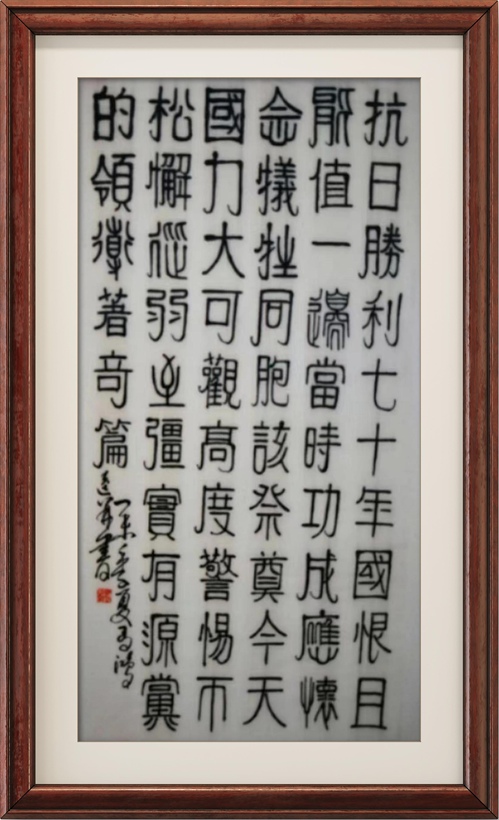 抗日勝利七十年國恨且
值一邊當時功成應懷
念犧牲同胞該祭奠今天
國力大可觀高度警惕不
松懈從弱至彊實有源黨
的領導著奇篇
乙未季夏馬鴻
書